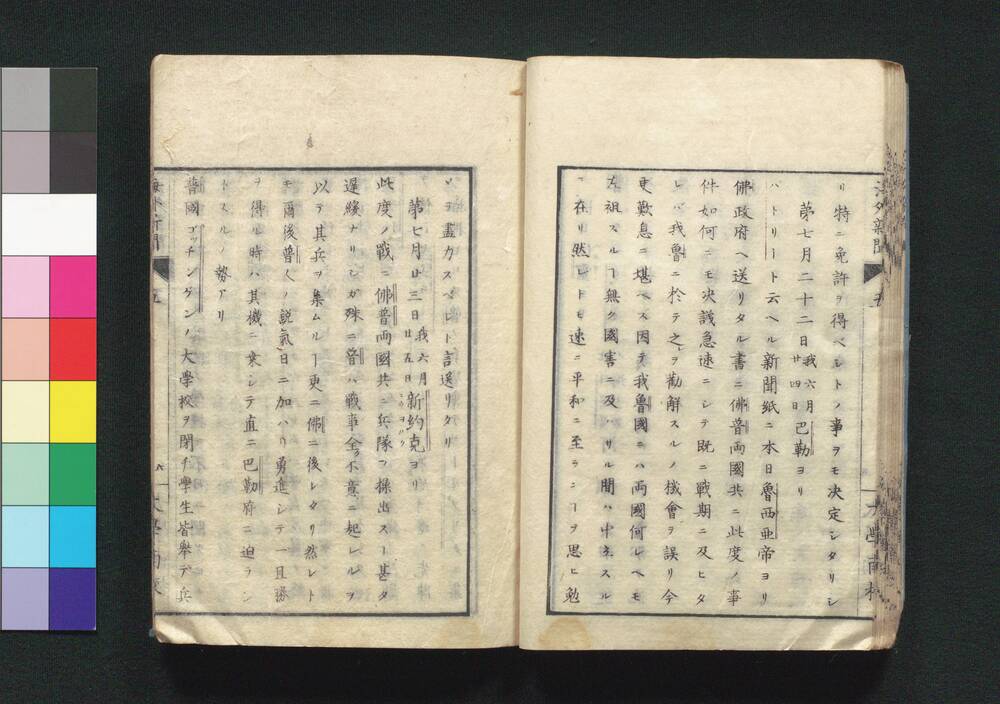 リ特ニ免許ヲ得ベシトノ事ヲモ决定シタリシ
第七月二十二日我六月廿四日巴勒ヨリ
パトリートト云ヘル新聞紙ニ本日魯西亜帝ヨリ
佛政府ヘ送リタル書ニ佛普両國共ニ此度ノ事
件如何ニモ决議急速ニシテ既ニ戰期ニ及ヒタ
レバ我魯ニ於テ之ヲ勸解スルノ機會ヲ誤リ今
更歎息ニ堪ヘス因テ我魯國ニハ両國何レヘモ
左袒スルヿ無ク國害ニ及ハサル間ハ中立スル
ニ在リ然レドモ速ニ平和ニ至ランヿヲ思ヒ勉
メヲ盡カスベシト言送リタリ
第七月廿三日我六月廿五日新約克ヨリ
ニウヨルク
此度ノ戰ニ佛普両國共ニ兵隊ヲ操出スヿ甚タ
遅緩ナリシガ殊ニ普ハ戰事全ク不意ニ起レルヲ
以テ其兵ヲ集ムルヿ更ニ佛ニ後レタリ然レト
モ爾後普人ノ鋭氣日ニ加ハリ勇進シテ一且勝
ヲ得ル時ハ其機ニ乗シテ直ニ巴勒府ニ迫ラン
トスルノ勢アリ
普國ゴッチンゲンノ大學校ヲ閉チ學生皆舉テ兵
海外新聞
五
大學南校